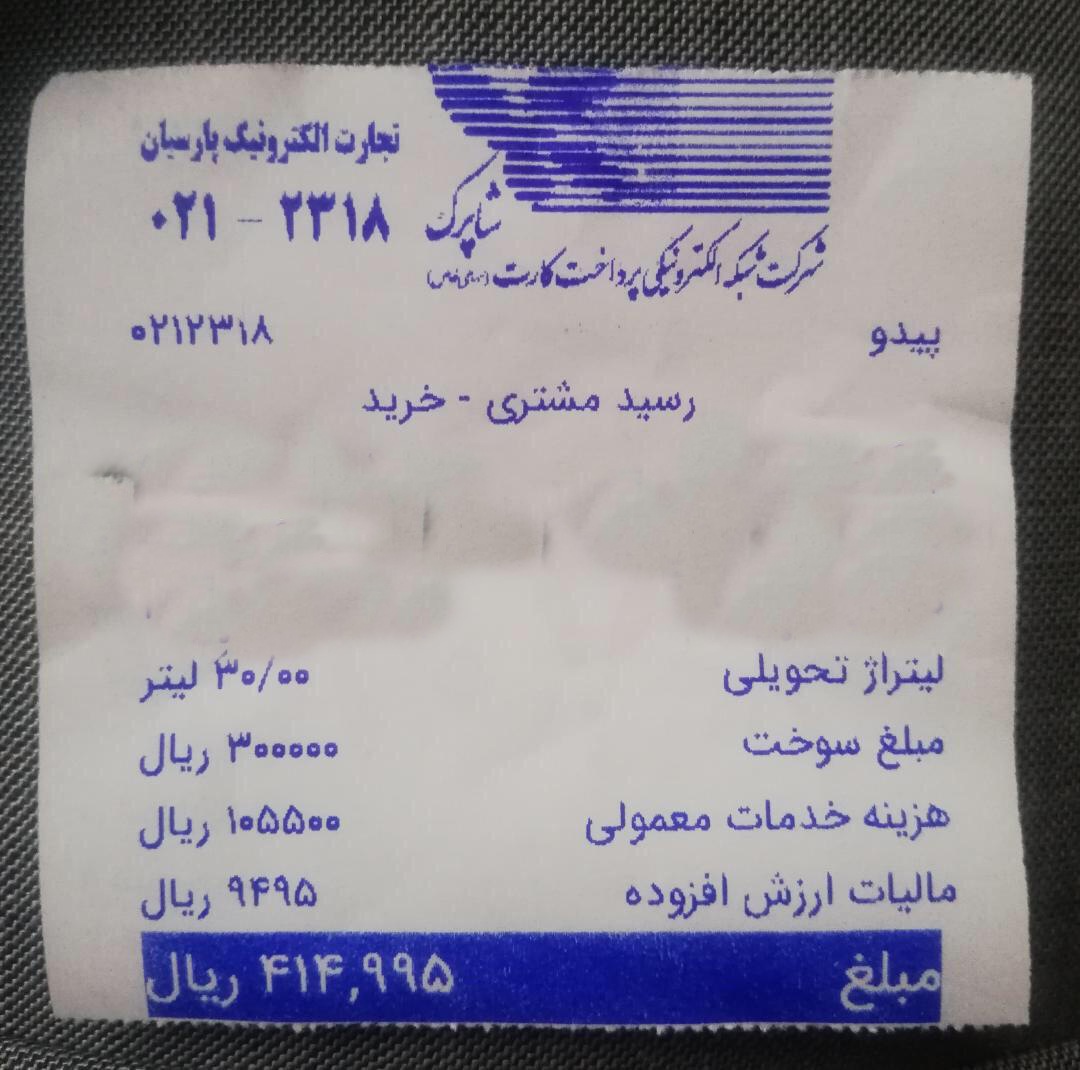 تجارت الکترونیک پارسیان
۰۲۱ - ۲۳۱۸
شاپرک
شرکت شبکه الکترونیکی پرداخت کارت
پیدو ۰۲۱۲۳۱۸
رسید مشتری - خرید
لیتراژ تحویلی ۳۰/۰۰ لیتر
مبلغ سوخت ۳۰۰۰۰۰ ریال
هزینه خدمات معمولی ۱۰۵۵۰۰ ریال
مالیات ارزش افزوده ۹۴۹۵ ریال
مبلغ ۴۱۴,۹۹۵ ریال